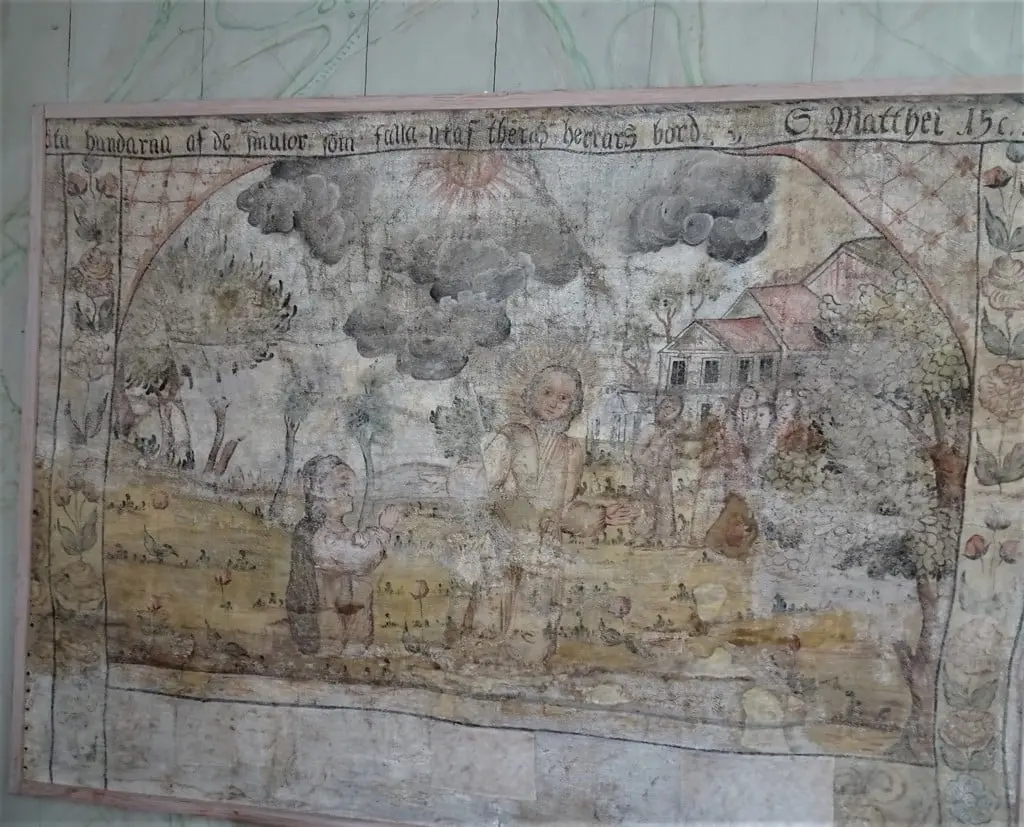 äta hundarna af de smulor som falla utaf theras herrars bord. S. Matthei 15 c.